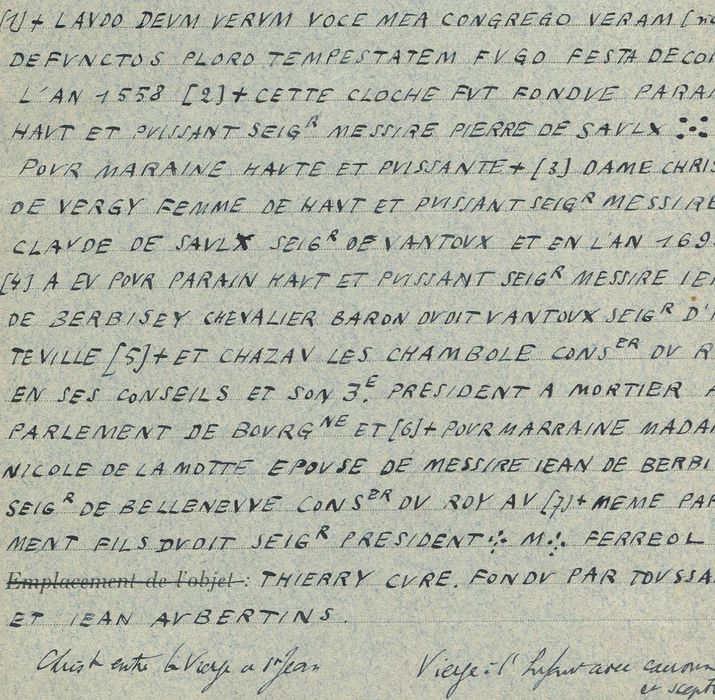 [1] + LAVDO DEVM VERVM VOCE MEA CONGREGO VERAM [no
DEFVNCTOS PLORO TEMPESTATEM FVGO FESTA DECO
L'AN 1558 [2] + CETTE CLOCHE FVT FONDVE PARA
HAVT ET PVISSANT SEIGR MESSIRE PIERRE DE SAVLX
POVR MARAINE HAVTE ET PVISSANTE + [3] DAME CHRIS
DE VERGY FEMME DE HAVT ET PVISSANT SEIGR MESSIRE
CLAVDE DE SAVLX SEIGR DE VANTOVX ET EN L'AN 169
[4] A EV POVR PARAIN HAVT ET PVISSANT SEIGR MESSIRE IE
DE BERBISEY CHEVALIER BARON DVDIT VANTOVX SEIGR D'
TEVILLE [5] + ET CHAZAV LES CHAMBOLE CONSER DV R
EN SES CONSEILS ET SON 3.E PRESIDENT A MORTIER A
PARLEMENT DE BOVRGNE ET [6] + POVR MARRAINE MADA
NICOLE DE LA MOTTE EPOVSE DE MESSIRE IEAN DE BERBI
SEIGR DE BELLENEVVE CONSER DV ROY AV [7] + MEME PAR
MENT FILS DVDIT SEIGR PRESIDENT M. FERREOL
Emplacement de l'objet : THIERRY CVRE. FONDV PAR TOVSSA
ET IEAN AVBERTINS.
Christ entre la Vierge et St Jean Vierge à l'Enfant avec couronn
et scept